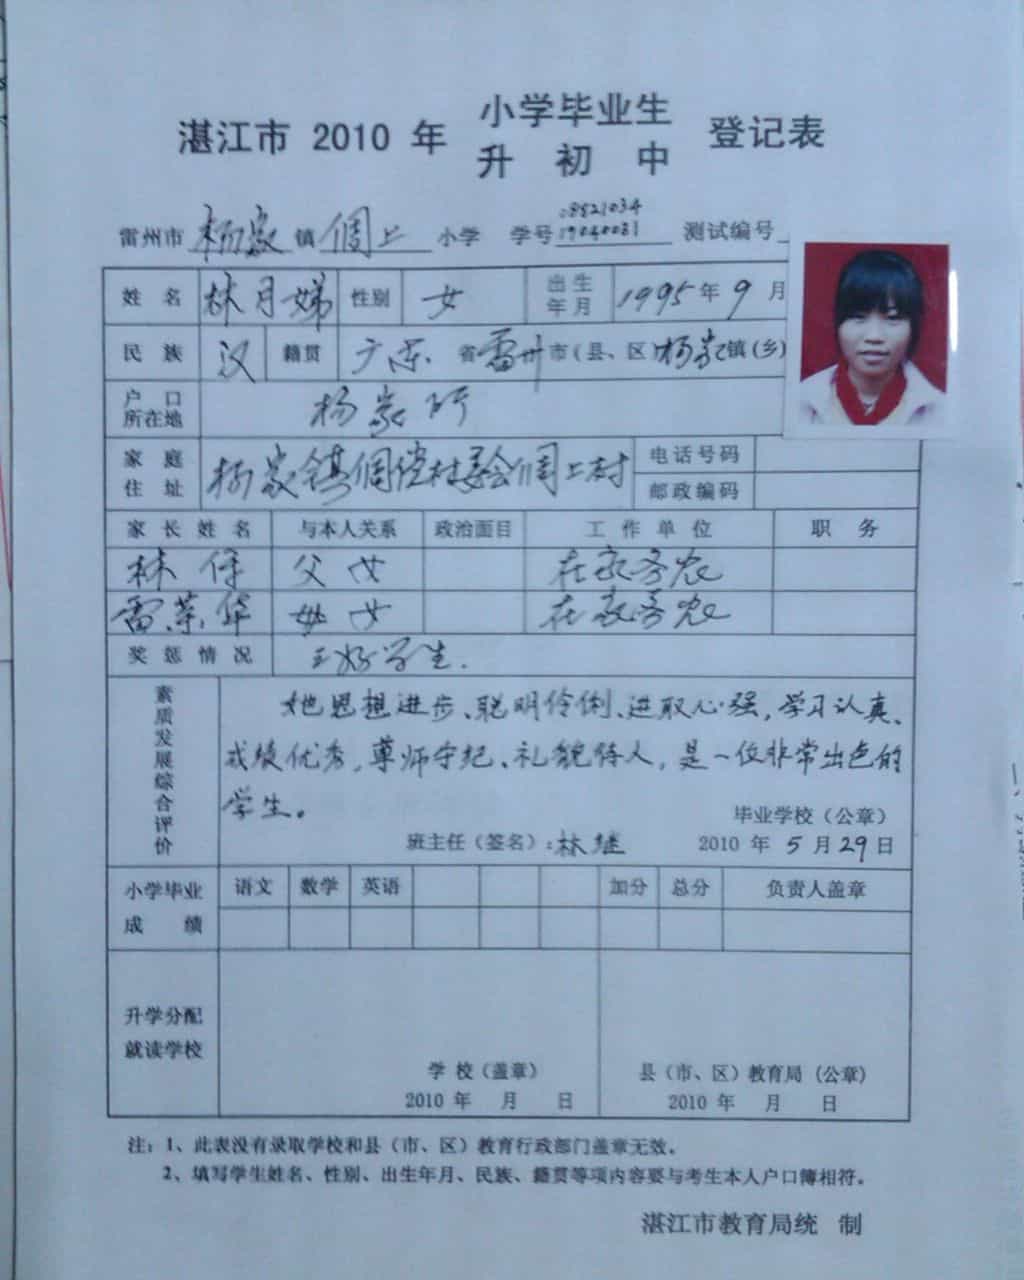 湛江市 2010 年 小学毕业生 登记表
升 初 中
雷州市 杨家 镇 倜上 小学 学号 测试编号
19040031
姓 名 林月娣 性别 女 出生年月 1995 年 9 月
民 族 汉 籍贯 广东 省 雷州 市(县、区) 杨家 镇(乡)
户 口 所在地 杨家
家 庭 住 址 杨家镇 倜上村 电话号码
邮政编码
家 长 姓 名 与本人关系 政治面目 工 作 单 位 职 务
林 父 女 在家务农
雷荣华 母 女 在家务农
奖 惩 情 况 三好学生.
素质发展综合评价
她思想进步、聪明伶俐、进取心强,学习认真、
成绩优秀,尊师守纪、礼貌待人,是一位非常出色的
学生。
毕业学校(公章)
班主任(签名):林继 2010 年 5 月 29 日
小学毕业 成 绩 语文 数学 英语 加分 总分 负责人盖章
升学分配
就读学校
学 校(盖章) 县(市、区)教育局(公章)
2010 年 月 日 2010 年 月 日
注:1、此表没有录取学校和县(市、区)教育行政部门盖章无效。
2、填写学生姓名、性别、出生年月、民族、籍贯等项内容要与考生本人户口簿相符。
湛江市教育局统 制